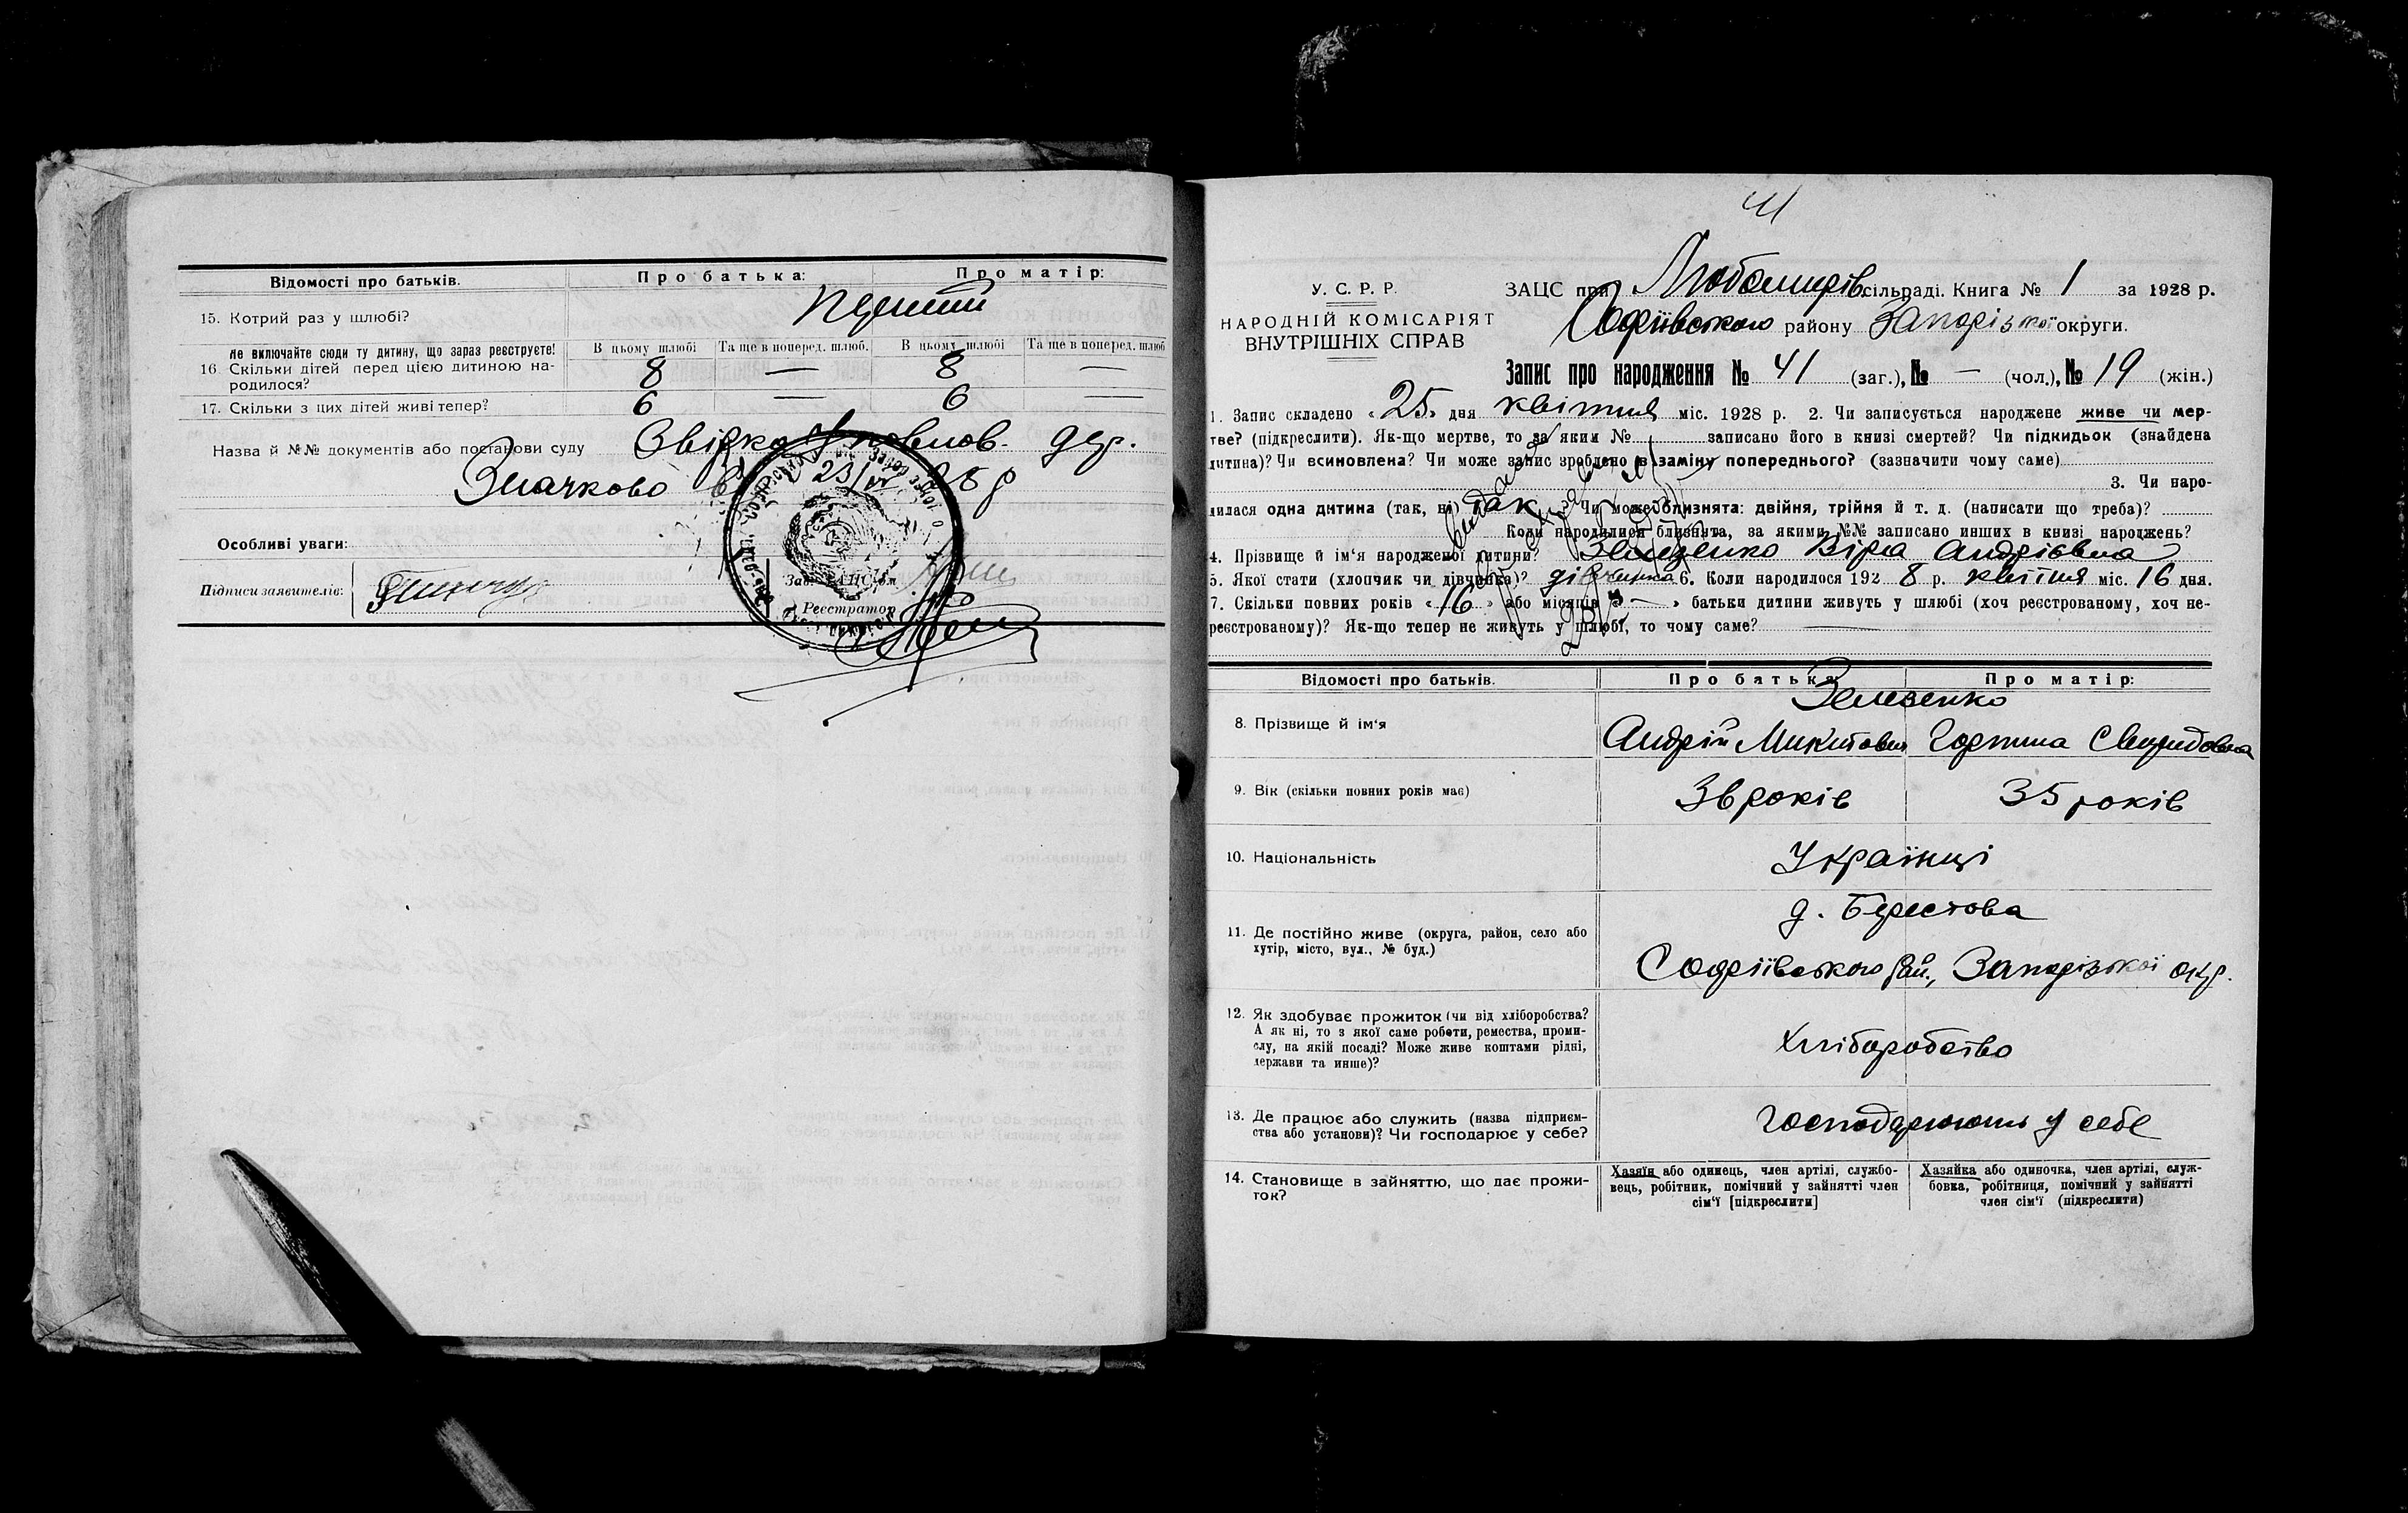 Відомості про батьків. Про батька: Про матір:
15. Котрий раз у шлюбі? перший
не включайте сюди ту дитину, що зараз реєструєте! В цьому шлюбі Та ще в поперед. шлюб. В цьому шлюбі Та ще в поперед. шлюб
16. Скільки дітей перед цією дитиною на- 8 — 8 —
родилося?
17. Скільки з цих дітей живі тепер? 6 — 6 —
Назва й №№ документів або постанови суду Звідка Уповнов. дер.
Значково 23/IV 28 р
Особливі уваги:
Підписи заявителів:
Зав. ЗАЦС'ом
Реєстратор
41
У. С. Р. Р.
НАРОДНІЙ КОМІСАРІЯТ
ВНУТРІШНІХ СПРАВ
ЗАЦС при Любомирів. сільраді. Книга № 1 за 1928 р.
Софіївського району Запорізької округи.
Запис про народження № 41 (заг.), № — (чол.), № 19 (жін.)
1. Запис складено «25» дня квітня міс. 1928 р. 2. Чи записується народжене живе чи мер-
тве? (підкреслити). Як-що мертве, то за яким № записано його в книзі смертей? Чи підкидьок (знайдена
дитина)? Чи всиновлена? Чи може запис зроблено в заміну попереднього? (зазначити чому саме)
3. Чи наро-
дилася одна дитина (так, ні) так ? Чи може близнята: двійня, трійня й т. д. (написати що треба)?
Коли народилися близнята, за якими №№ записано инших в книзі народжень?
4. Прізвище й ім'я народженої дитини? Землзенко Віра Андріївна
5. Якої стати (хлопчик чи дівчинка)? дівчинка 6. Коли народилося 192 8 р. квітня міс. 16 дня.
7. Скільки повних років «16» або місяців « — » батьки дитини живуть у шлюбі (хоч реєстрованому, хоч не-
реєстрованому)? Як-що тепер не живуть у шлюбі, то чому саме? —
Відомості про батьків. Про батька: Про матір:
8. Прізвище й ім'я
Андрій Микитович Горпина Свиридовна
9. Вік (скільки повних років має) 36 років 35 років
10. Національність Українці
д. Берестова
11. Де постійно живе (округа, район, село або
хутір, місто, вул., № буд.)
Софіївського рай., Запорізької окр.
12. Як здобуває прожиток (чи від хліборобства?
А як ні, то з якої саме роботи, ремества, проми-
слу, на якій посаді? Може живе коштами рідні,
держави та инше)?
Хліборобство
13. Де працює або служить (назва підприєм-
ства або установи)? Чи господарює у себе?
Господарюють у себе
14. Становище в зайняттю, що дає прожи-
ток?
Хазяїн або одинець, член артілі, службо-
вець, робітник, помічний у зайнятті член
сім'ї [підкреслити]
Хазяйка або одиночка, член артілі, служ-
бовка, робітниця, помічний у зайнятті
член сім'ї (підкреслити)